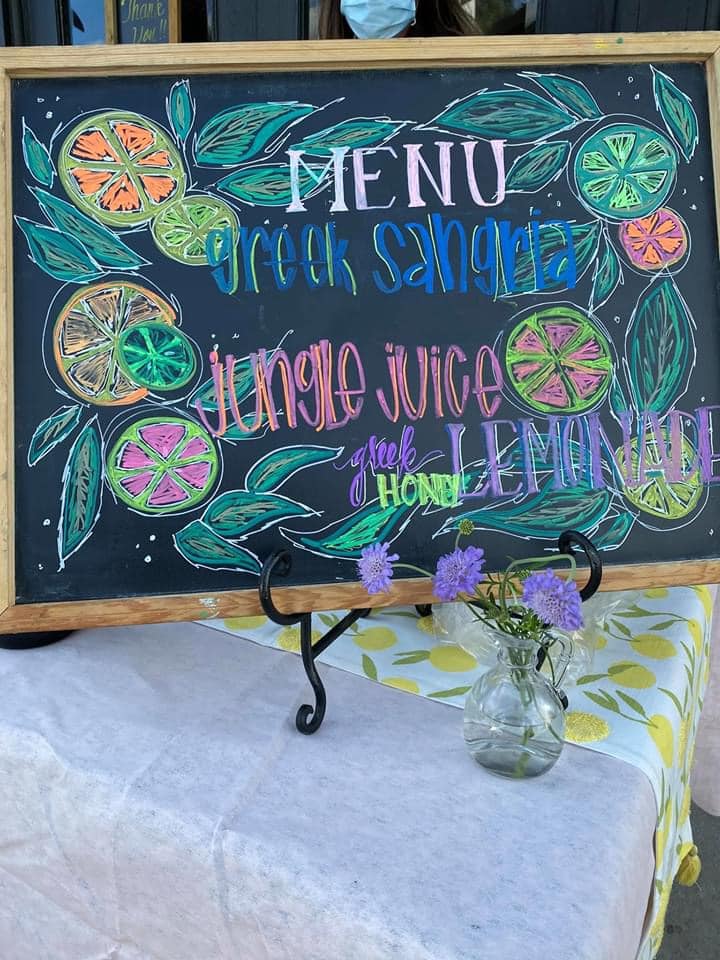 Thank
You!!
MENU
greek sangria
jungle juice
greek
HONEY LEMONADE